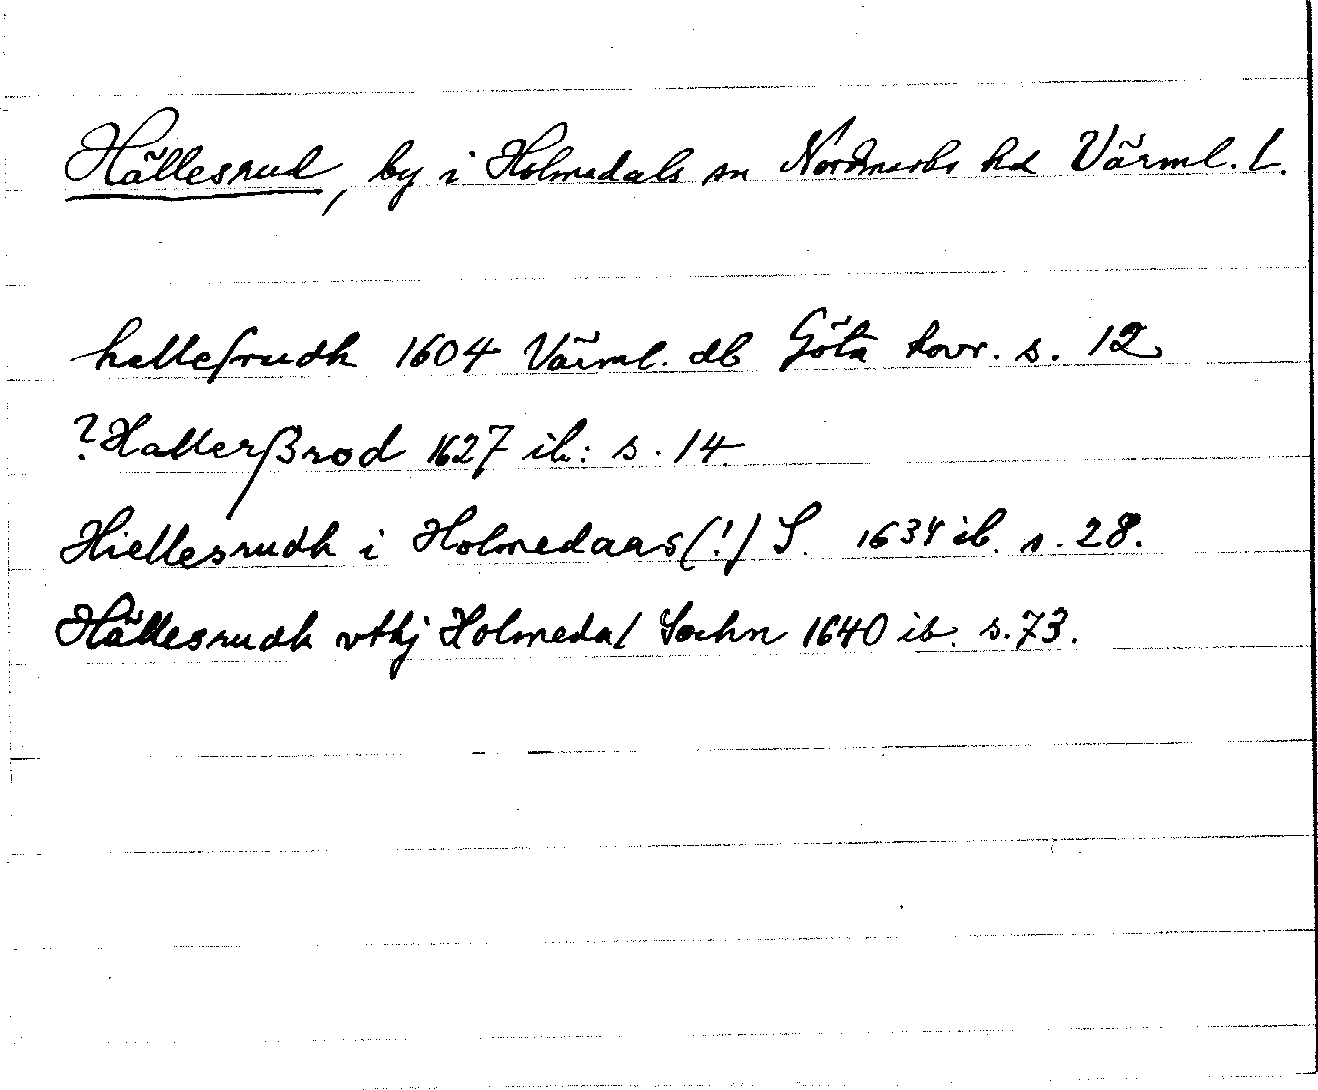 Hällesrud, by i Holmedals sn Nordmarks hd Värml. l.
hellesrudh 1604 Värml. db Göta hovr. s. 12
? Hallerßrod 1627 ib: s. 14
Hiellesrudh i Holmedaas (!) S. 1634 ib. s. 28.
Hällesrudh vthj Holmedal Sochn 1640 ib. s. 73.